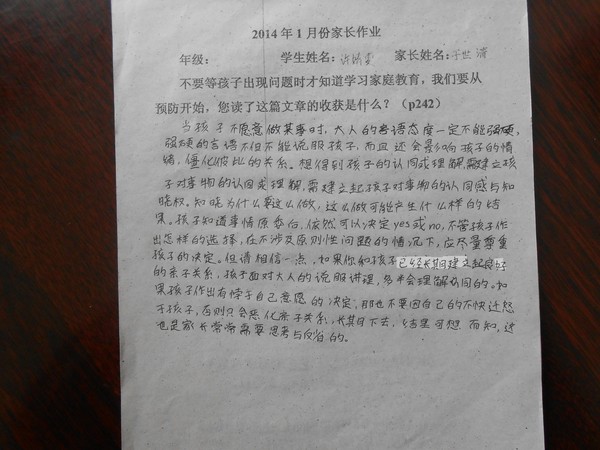 2014年1月份家长作业
年级: 学生姓名: 家长姓名:
不要等孩子出现问题时才知道学习家庭教育，我们要从
预防开始，您读了这篇文章的收获是什么？（p242）
当孩子不愿意做某事时，大人的言语态度一定不能强硬，
强硬的言语不但不能说服孩子，而且还会影响孩子的情
绪，僵化彼此的关系。想得到孩子的认同或理解，需建立孩
子对事物的认同或理解，需建立起孩子对事物的认同感与知
晓权。知晓为什么要这么做，这么做可能产生什么样的结
果。孩子知道事情原委后，依然可以决定yes或no，不管孩子作
出怎样的选择，在不涉及原则性问题的情况下，应尽量尊重
孩子的决定。但请相信一点，如果你和孩子已经长期建立起良好
的亲子关系，孩子面对大人的说服讲理，多半会理解认同的。如
果孩子作出有悖于自己意愿的决定，那也不要因自己的不快迁怒
于孩子，否则只会恶化亲子关系，长其日下去，结果可想而知，这
也是家长常常需要思考与反省的。